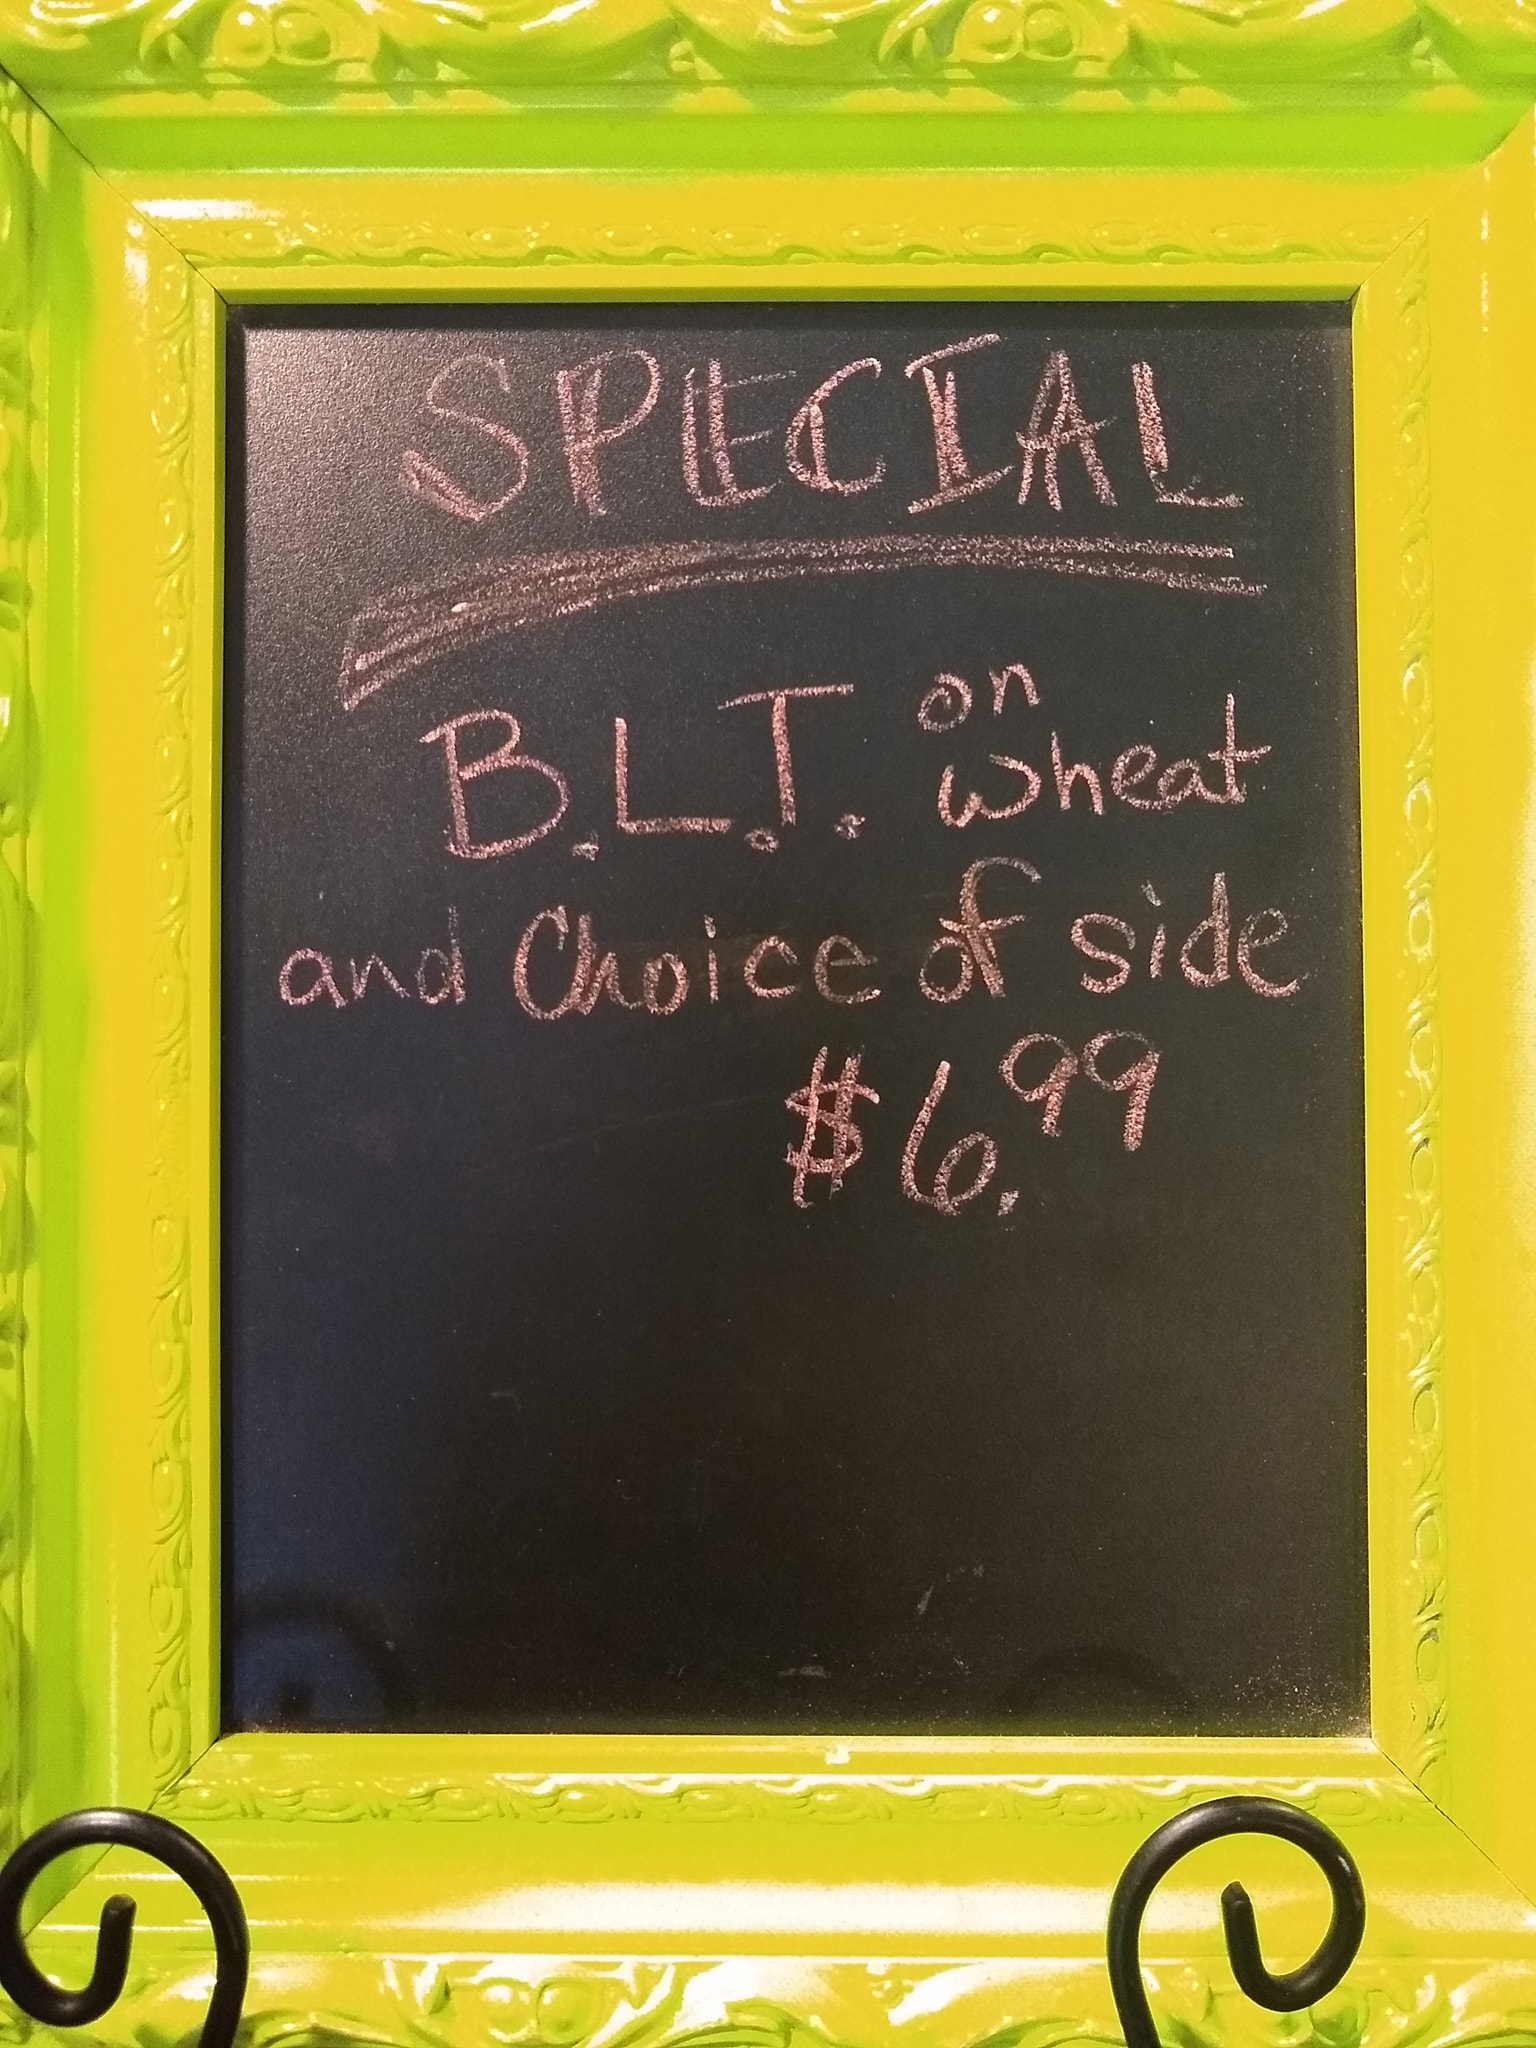 SPECIAL
B.L.T. on wheat
and Choice of side
$6.99